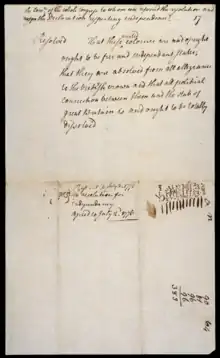 The Comm.ee of the whole Congress to whom was referred the resolution and
the Declaration respecting independence.
17
Resolved
That these united colonies are and of right
ought to be free and independent states,
that they are absolved from all allegiance
to the british crown and that all political
connection between them and the state of
great Britain is and ought to be totally
dissolved
resolution for
independancy
agreed to July 2. 1776